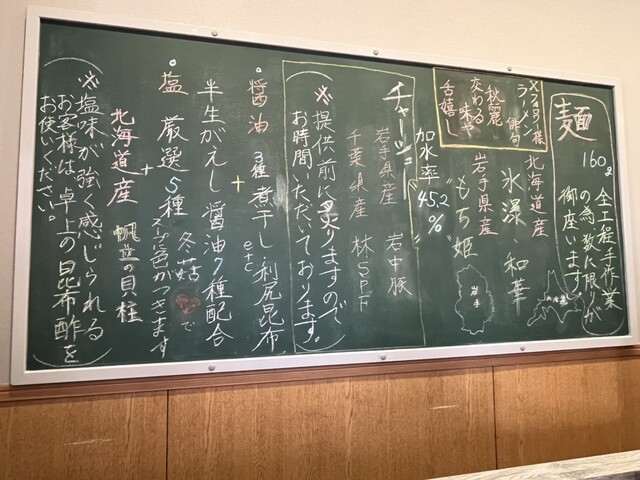 麺
160g
全工程手作業
の為数に限りが
御座います
ラーメン俳句
秋麗
交わる味や
舌嬉し
北海道産
氷瀑、和華
岩手県産
“もち姫”
北海道
岩手
加水率
45.2
%
チャーシュー
岩手県産 岩中豚
千葉県産 林SPF
(※提供前に炙りますので
お時間いただいております。)
。醤油 3種煮干し、利尻昆布
etc
+
半生がえし醤油7種配合
。塩 厳選5種 冬菇で
スープに色がつきます
+
北海道産 帆立の貝柱
(※塩味が強く感じられる
お客様は、卓上の昆布酢を
お使いください。)